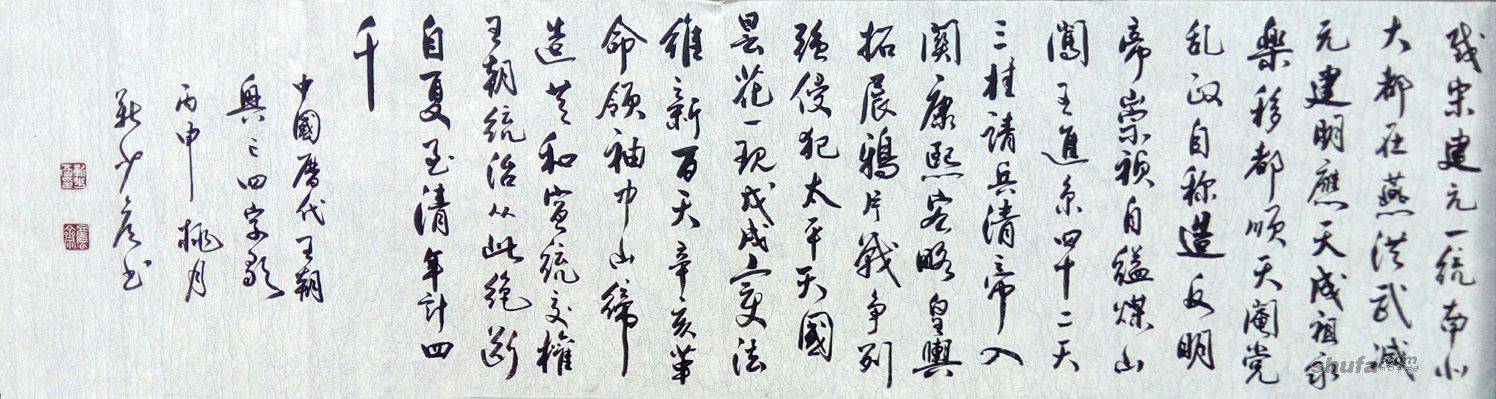 宋建元一統南北
大都在燕洪武滅
元建明應天成祖永
樂移都順天閹党
乱政自称造反明
帝崇祯自缢煤山
闖王進京四十二天
三桂請兵清帝入
関康熙宏略皇輿
拓展鴉片戰争列
强侵犯太平天國
昙花一现戊戌变法
維新百天辛亥革
命领袖中山缔
造共和宣統交權
王朝統治从此絶断
自夏至清年计四
千
中國歷代王朝
興亡四字歌
丙申桃月
靳少书
shufa.com